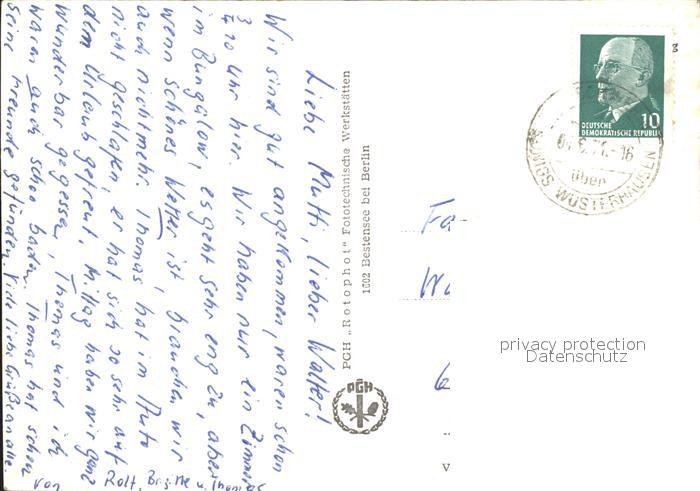 Liebe Mutti, lieber Walter!
Wir sind gut angekommen, waren schon
3/4 10 Uhr hier. Wir haben nur ein Zimmer
im Bungalow, es geht sehr eng zu, aber
wenn schönes Wetter ist, brauchen wir
auch nicht mehr. Thomas hat im Auto
nicht geschlafen, er hat sich so sehr auf
dem Urlaub gefreut. Mittag haben wir ganz
wunderbar gegessen, Thomas und ich
waren auch schon baden. Thomas hat schon
seine Freunde gefunden. Viele liebe Grüße an alle.
von Rolf, Brigitte u. Thomas
PGH „Rotophot" Fototechnische Werkstätten
1602 Bestensee bei Berlin
PGH
10
DEUTSCHE
DEMOKRATISCHE REPUBLIK
-16
über
KÖNIGS WUSTERHAUSEN
Fa
W
V
privacy protection
Datenschutz